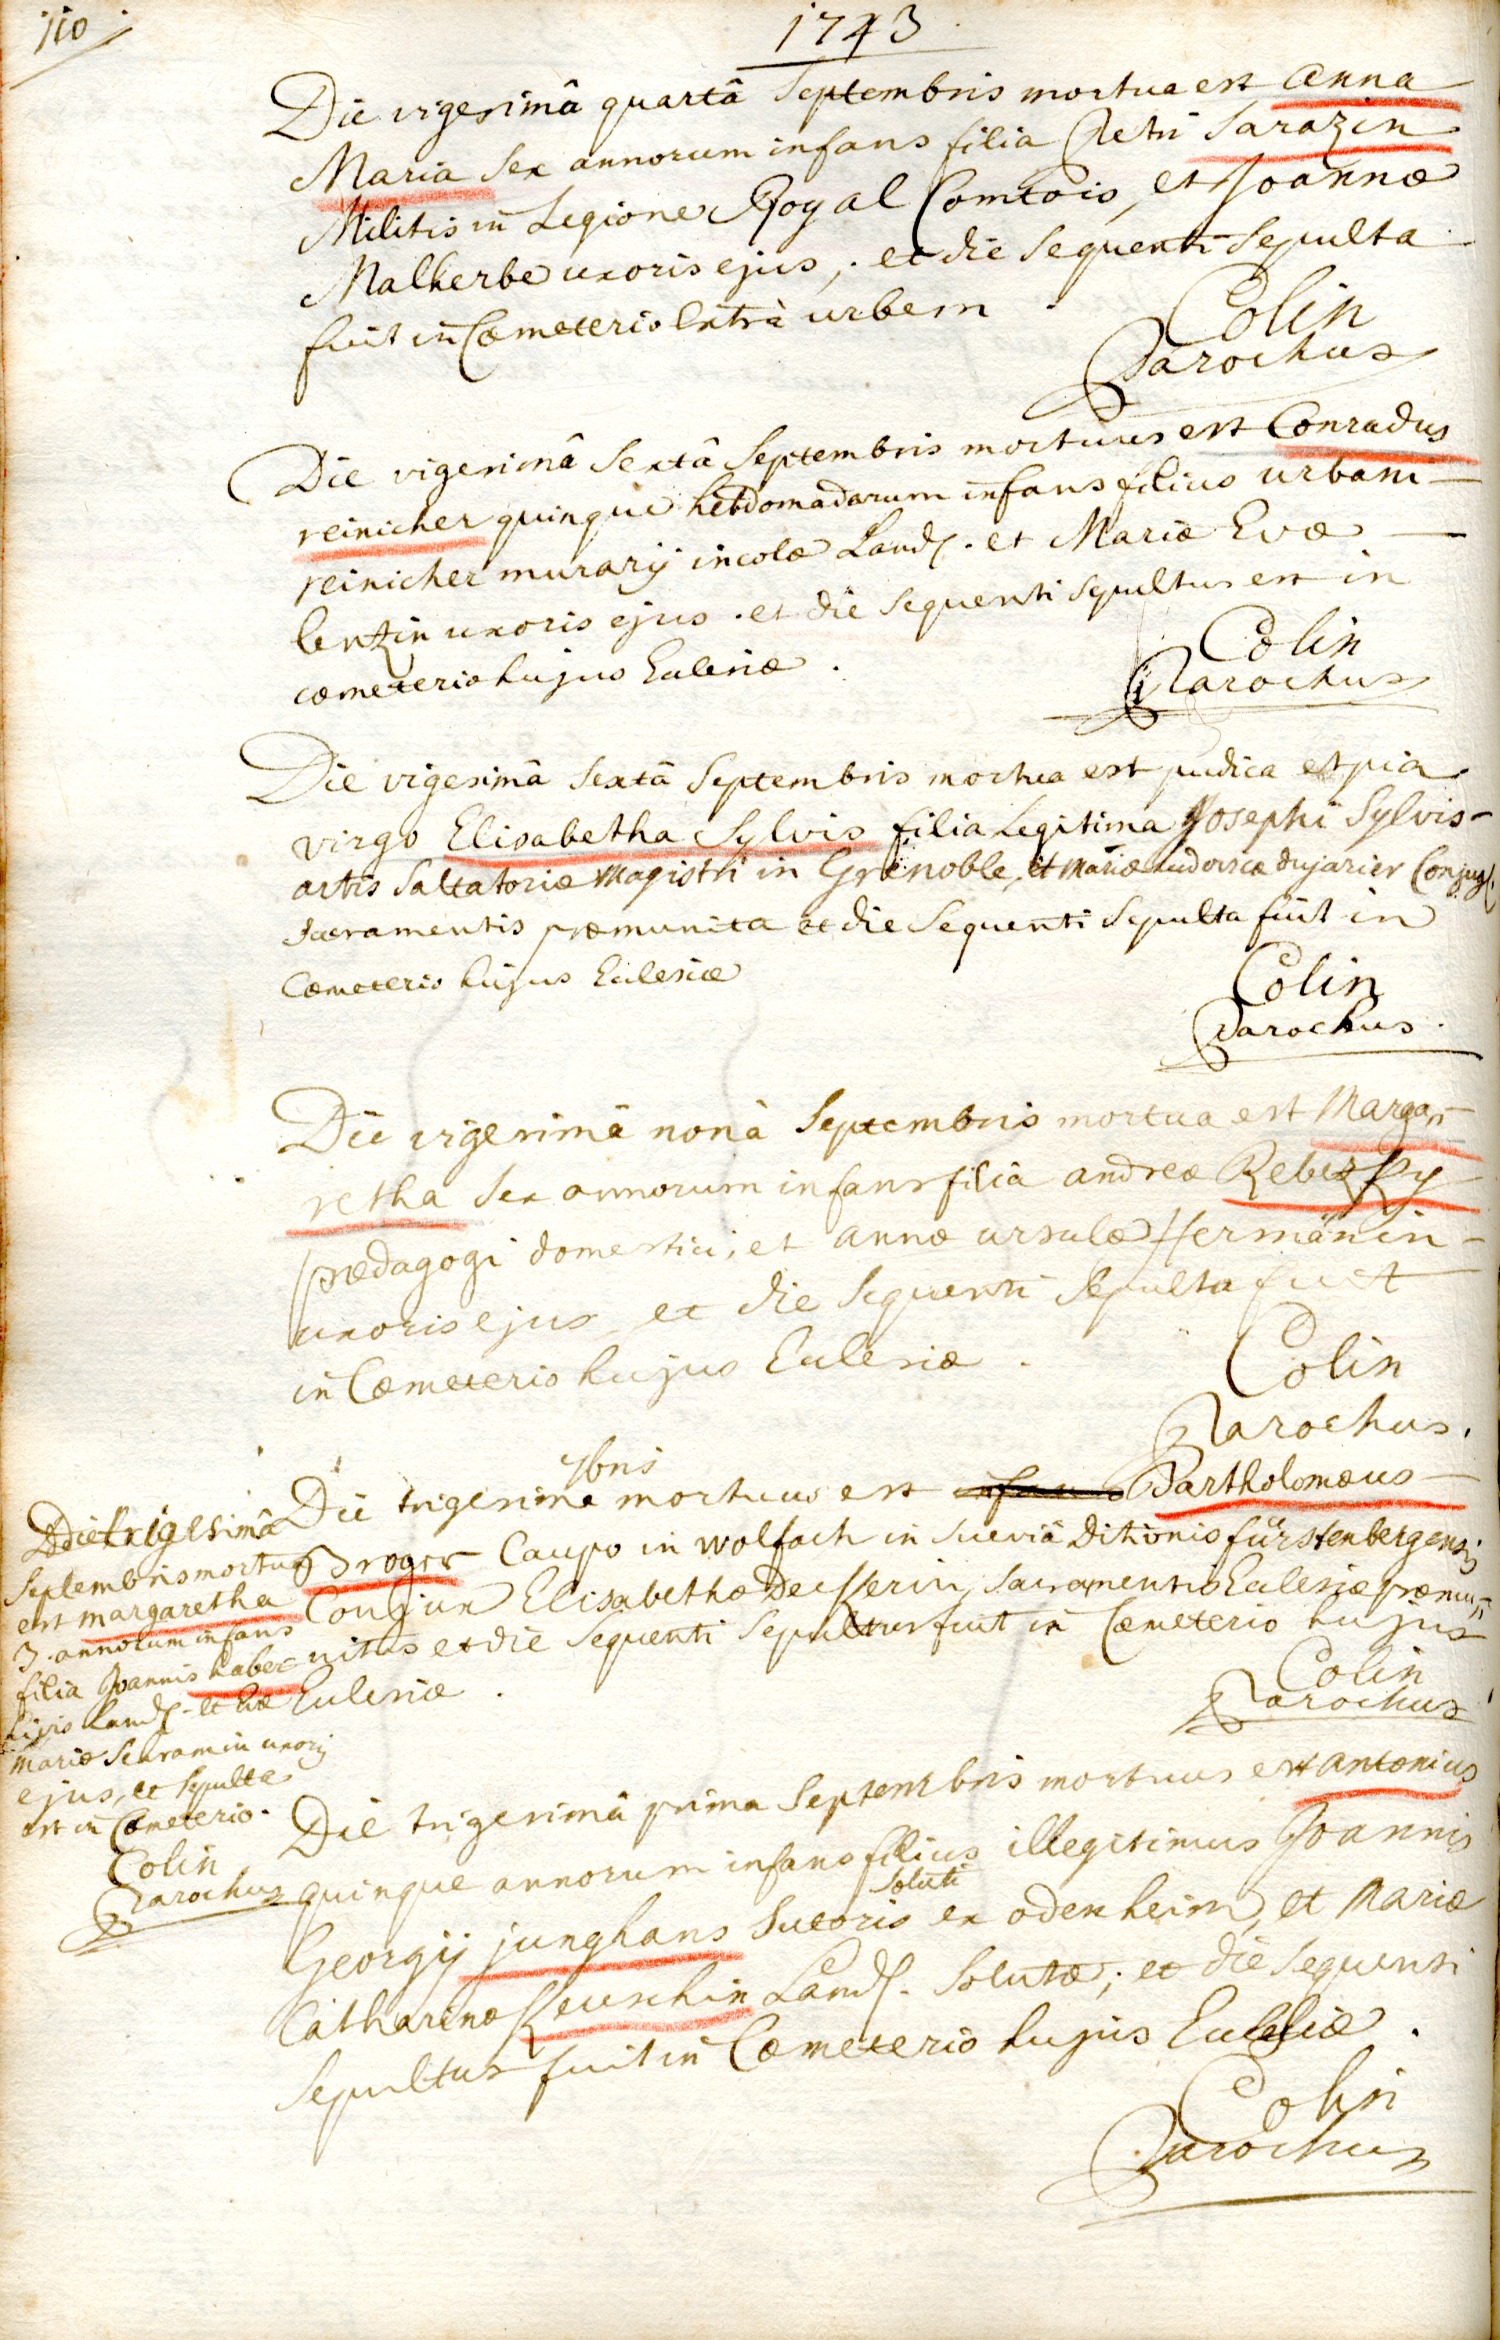 110
1743
Die vigesimâ quartâ Septembris mortua est Anna
Maria sex annorum infans filia Petri Sarazin
Militis in Legione Royal Comtois, et Joannæ
Malherbe uxoris ejus, et die sequenti sepulta
fuit in Cœmeterio Extrà urbem
Colin
Parochus
Die vigesimâ sextâ Septembris mortuus est Conradus
reinicher quinque hebdomadarum infans filius urbani
reinicher murarij incolæ Land. et Mariæ Evæ
lentzin uxoris ejus. et die sequenti sepultus est in
cœmeterio hujus Eclesiæ.
Colin
Parochus
Die vigesimâ sextâ Septembris mortua est pudica et pia
virgo Elisabetha Sylvis filia Legitima Josephi Sylvis
artis saltatoriæ Magistri in Grenoble, et Mariæ Ludovicæ dujarier Conjug.
sacramentis præmunita et die sequenti sepulta fuit in
Cœmeterio hujus Eclesiæ
Colin
Parochus.
Die vigesimâ nonâ Septembris mortua est Marga-
retha sex annorum infans filia andreæ
pædagogi domestici, et annæ ursulæ Hermãnin
uxoris ejus et die sequenti sepulta fuit
in Cœmeterio hujus Eclesiæ.
Colin
Parochus.
7bris
Die trigesima mortuus est infans Bartholomæus
Broger Caupo in wolfach in sueviâ Ditionis fürstenbergensis
Conjux Elisabethæ Deckerin, sacramentis Eclesiæ præmu-
nitus et die sequenti sepultus fuit in Cœmeterio hujus
Eclesiæ.
Colin
Parochus
Die trigesimâ
Septembris mortua
est margaretha
3. annorum infans
filia Joannis haber
Civis Land. et Evæ
Mariæ uxoris
ejus, et sepulta
est in Cœmeterio.
Colin
Parochus
Die trigesimâ prima Septembris mortuus est antonius
quinque annorum infans filius illegitimus Joannis
soluti
Georgij junghans sutoris ex odenheim, et Mariæ
Catharinæ Land. solutæ; et die sequenti
sepultus fuit in Cœmeterio hujus Eclesiæ.
Colin
Parochus